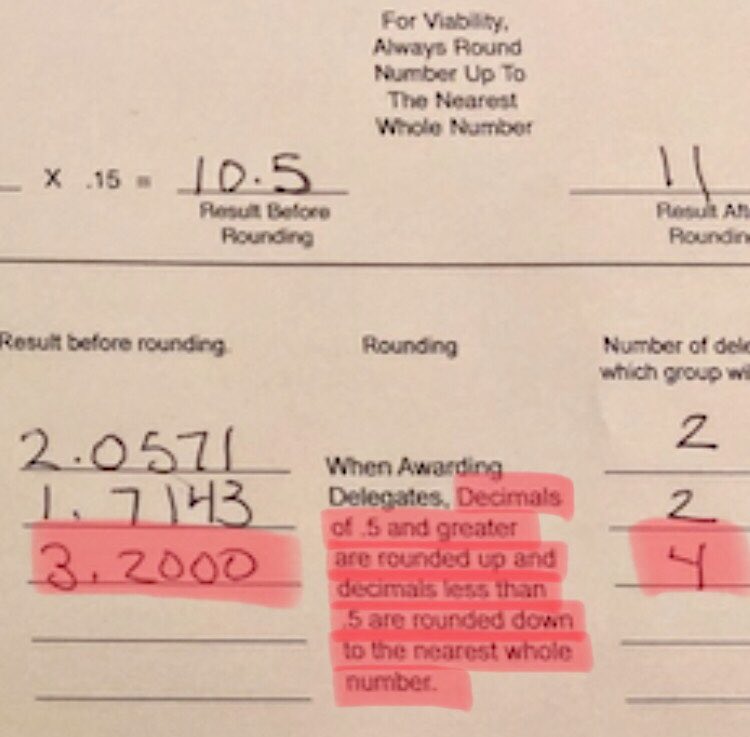 For Viability,
Always Round
Number Up To
The Nearest
Whole Number
X .15 = 10.5
11
Result Before
Rounding
Result
Result before rounding.
Rounding
Number of
which group
2.0571
2
When Awarding
1.7143
Delegates, Decimals
2
of .5 and greater
3.2000
are rounded up and
4
decimals less than
.5 are rounded down
to the nearest whole
number.